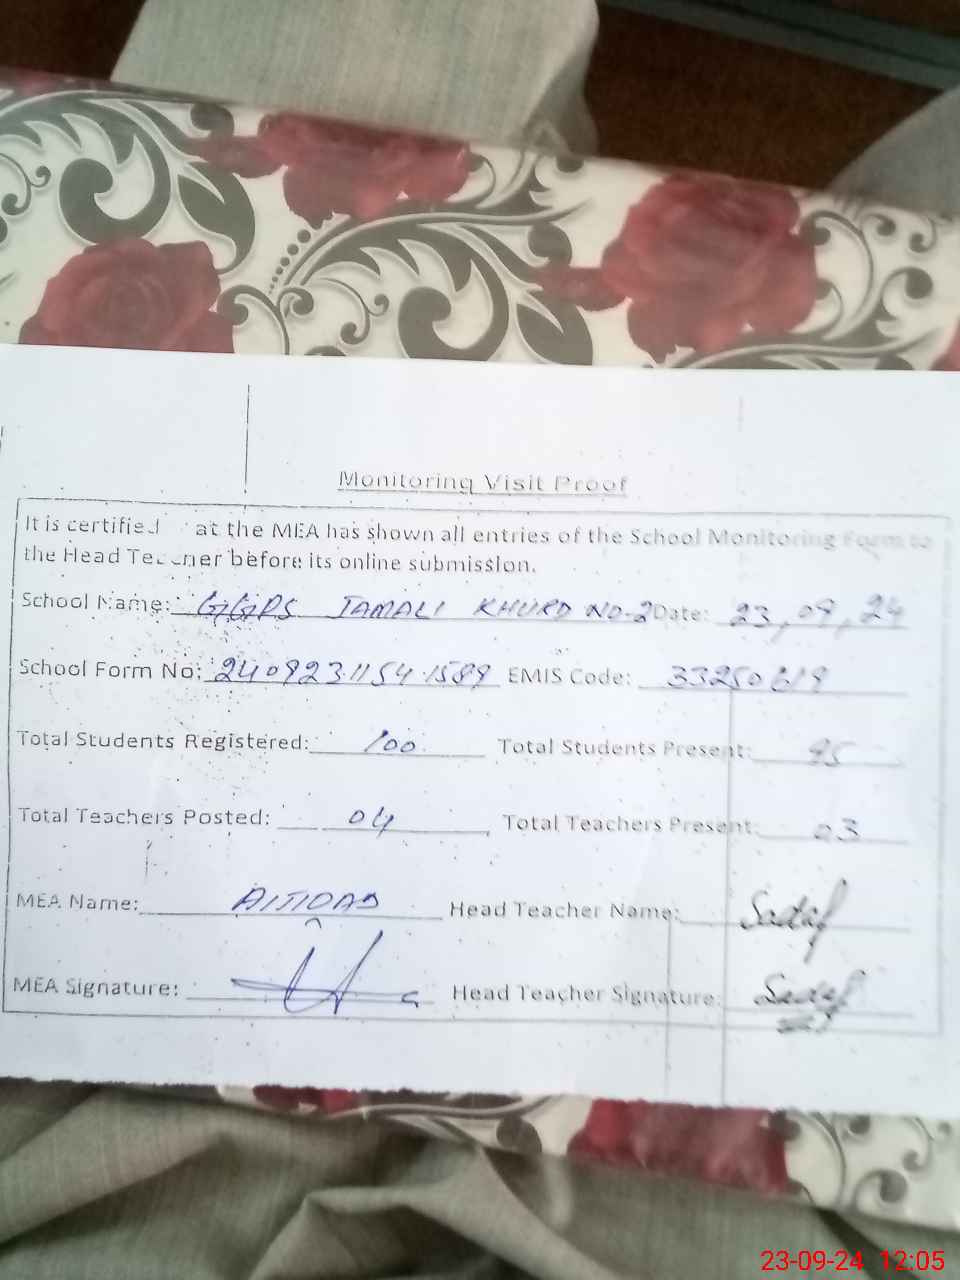 Monitoring Visit Proof
It is certified at the MEA has shown all entries of the School Monitoring Form to
the Head Teacher before its online submission.
School Name: GGPS JAMALI KHURD NO-2 Date: 23,09,24
School Form No: 240923.1154.1589 EMIS Code: 33250619
Total Students Registered: 100 Total Students Present: 95
Total Teachers Posted: 04 Total Teachers Present: 03
MEA Name: Head Teacher Name: Sadaf
MEA Signature: Head Teacher Signature: Sadaf
23-09-24 12:05